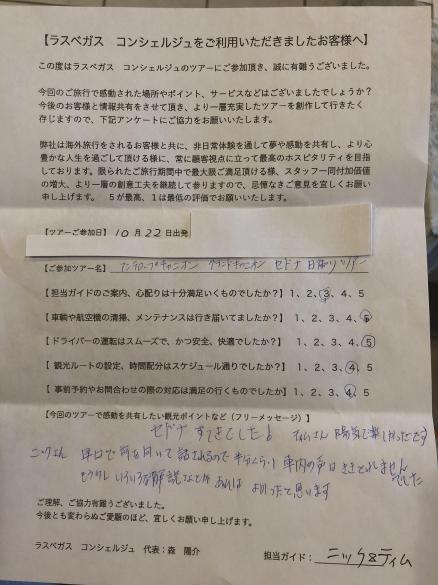 【ラスベガス コンシェルジュをご利用いただきましたお客様へ】
この度はラスベガス コンシェルジュのツアーにご参加頂き、誠に有難うございました。
今回のご旅行で感動された場所やポイント、サービスなどはございましたでしょうか？
今後のお客様と情報共有をさせて頂き、より一層充実したツアーを創作して行きたく
存じますので、下記アンケートにご協力をお願いいたします。
弊社は海外旅行をされるお客様と共に、非日常体験を通して夢や感動を共有し、より心
豊かな人生を過ごして頂ける様に、常に顧客視点に立って最高のホスピタリティを目指
しております。限られたご旅行期間中で最大限ご満足頂ける様、スタッフ一同付加価値
の増大、より一層の創意工夫を継続して参りますので、忌憚なきご意見を宜しくお願い
申し上げます。 5が最高、1は最低の評価でお願いいたします。
【ツアーご参加日】 10月22日出発
【ご参加ツアー名】 アンテロープキャニオン グランドキャニオン セドナ 日帰りツアー
【担当ガイドのご案内、心配りは十分満足いくものでしたか？】 1、2、3、4、5
【車輌や航空機の清掃、メンテナンスは行き届いてましたか？】 1、2、3、4、5
【ドライバーの運転はスムーズで、かつ安全、快適でしたか？】 1、2、3、4、5
【観光ルートの設定、時間配分はスケジュール通りでしたか？】 1、2、3、4、5
【事前予約やお問合わせの際の対応は満足の行くものでしたか】 1、2、3、4、5
【今回のツアーで感動を共有したい観光ポイントなど（フリーメッセージ）】
セドナ すてきでした♪ さん 陽気で楽しかったです
ニックさん 前を向いて話されるので 半分くらい 車内の声はききとれません
でした
もう少し いろいろな解説などが あれば よかったと思います
ご理解、ご協力有難うございました。
今後とも変わらぬご愛顧のほど、宜しくお願い申し上げます。
ラスベガス コンシェルジュ 代表：森 陽介
担当ガイド： ニック&ティム